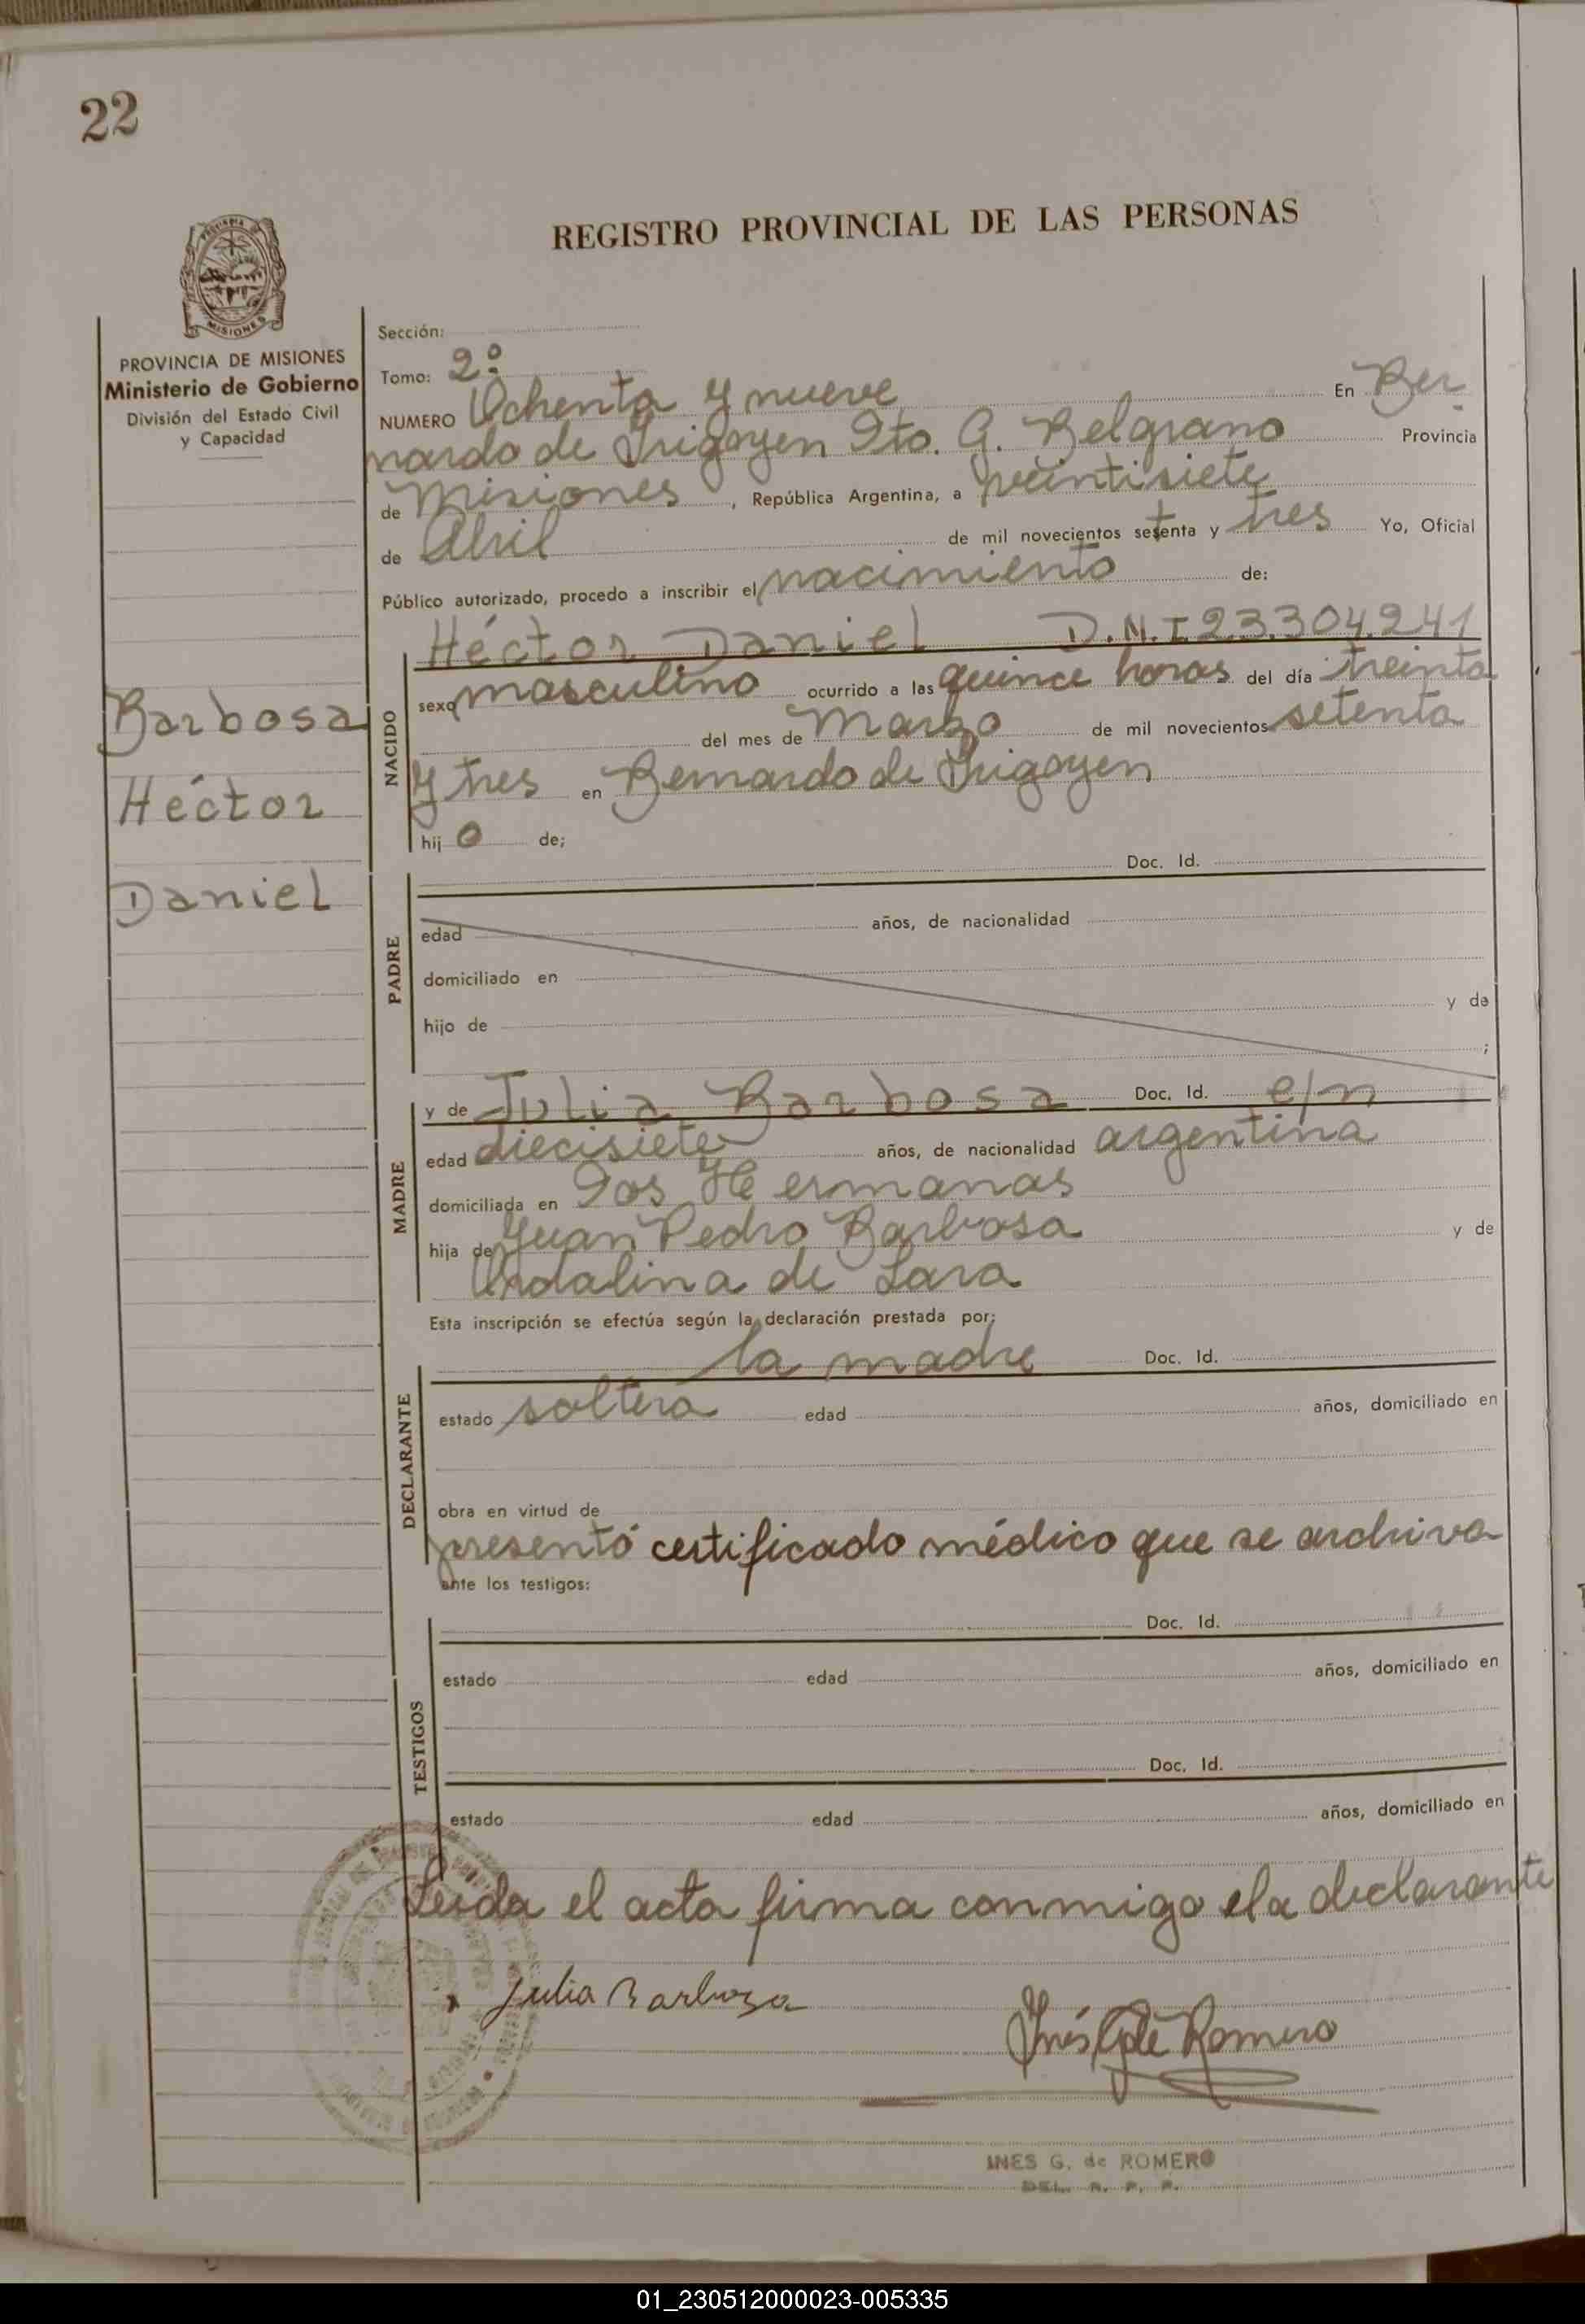 22
REGISTRO PROVINCIAL DE LAS PERSONAS
MISIONES
PROVINCIA DE MISIONES
Ministerio de Gobierno
División del Estado Civil
y Capacidad
Barbosa
Héctor
Daniel
Sección:
Tomo: 2º
NUMERO Ochenta y nueve En Ber
nardo de Irigoyen Dto. G. Belgrano Provincia
de Misiones, República Argentina, a veintisiete
de Abril de mil novecientos setenta y tres Yo, Oficial
Público autorizado, procedo a inscribir el nacimiento de:
NACIDO
Héctor Daniel D.N.I 23.304.241
sexo masculino ocurrido a las quince horas del día treinta
del mes de Marzo de mil novecientos setenta
y tres en Bernardo de Irigoyen
hij o de;
PADRE
Doc. Id.
edad años, de nacionalidad
domiciliado en
hijo de y de
;
MADRE
y de Julia Barbosa Doc. Id. e/n
edad diecisiete años, de nacionalidad argentina
domiciliada en Dos Hermanas
hija de Juan Pedro Barbosa y de
de Lara
Esta inscripción se efectúa según la declaración prestada por:
DECLARANTE
la madre Doc. Id.
estado soltera edad años, domiciliado en
obra en virtud de
presentó certificado médico que se archiva
ante los testigos:
TESTIGOS
Doc. Id.
estado edad años, domiciliado en
Doc. Id.
estado edad años, domiciliado en
Leida el acta firma conmigo la declarante
Julia Barboza
Inés G de Romero
INES G. de ROMERO
DEL. R. P. P.
01_230512000023-005335